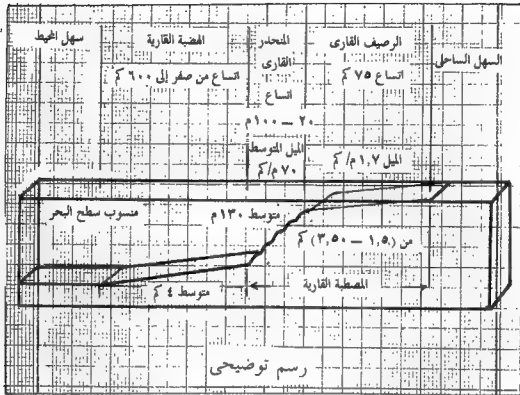 السهل الساحلى
الرصيف القارى
اتساع ٧٥ كم
الميل ١,٧ م/كم
المنحدر
القارى
اتساع
٢٠ — ١٠٠ م
الميل المتوسط
٧٠ م/كم
الهضبة القارية
اتساع من صفر إلى ٦٠٠ كم
سهل المحيط
منسوب سطح البحر
متوسط ١٣٠ م
من (١,٥ — ٣,٥٠) كم
المصطبة القارية
متوسط ٤ كم
رسم توضيحى